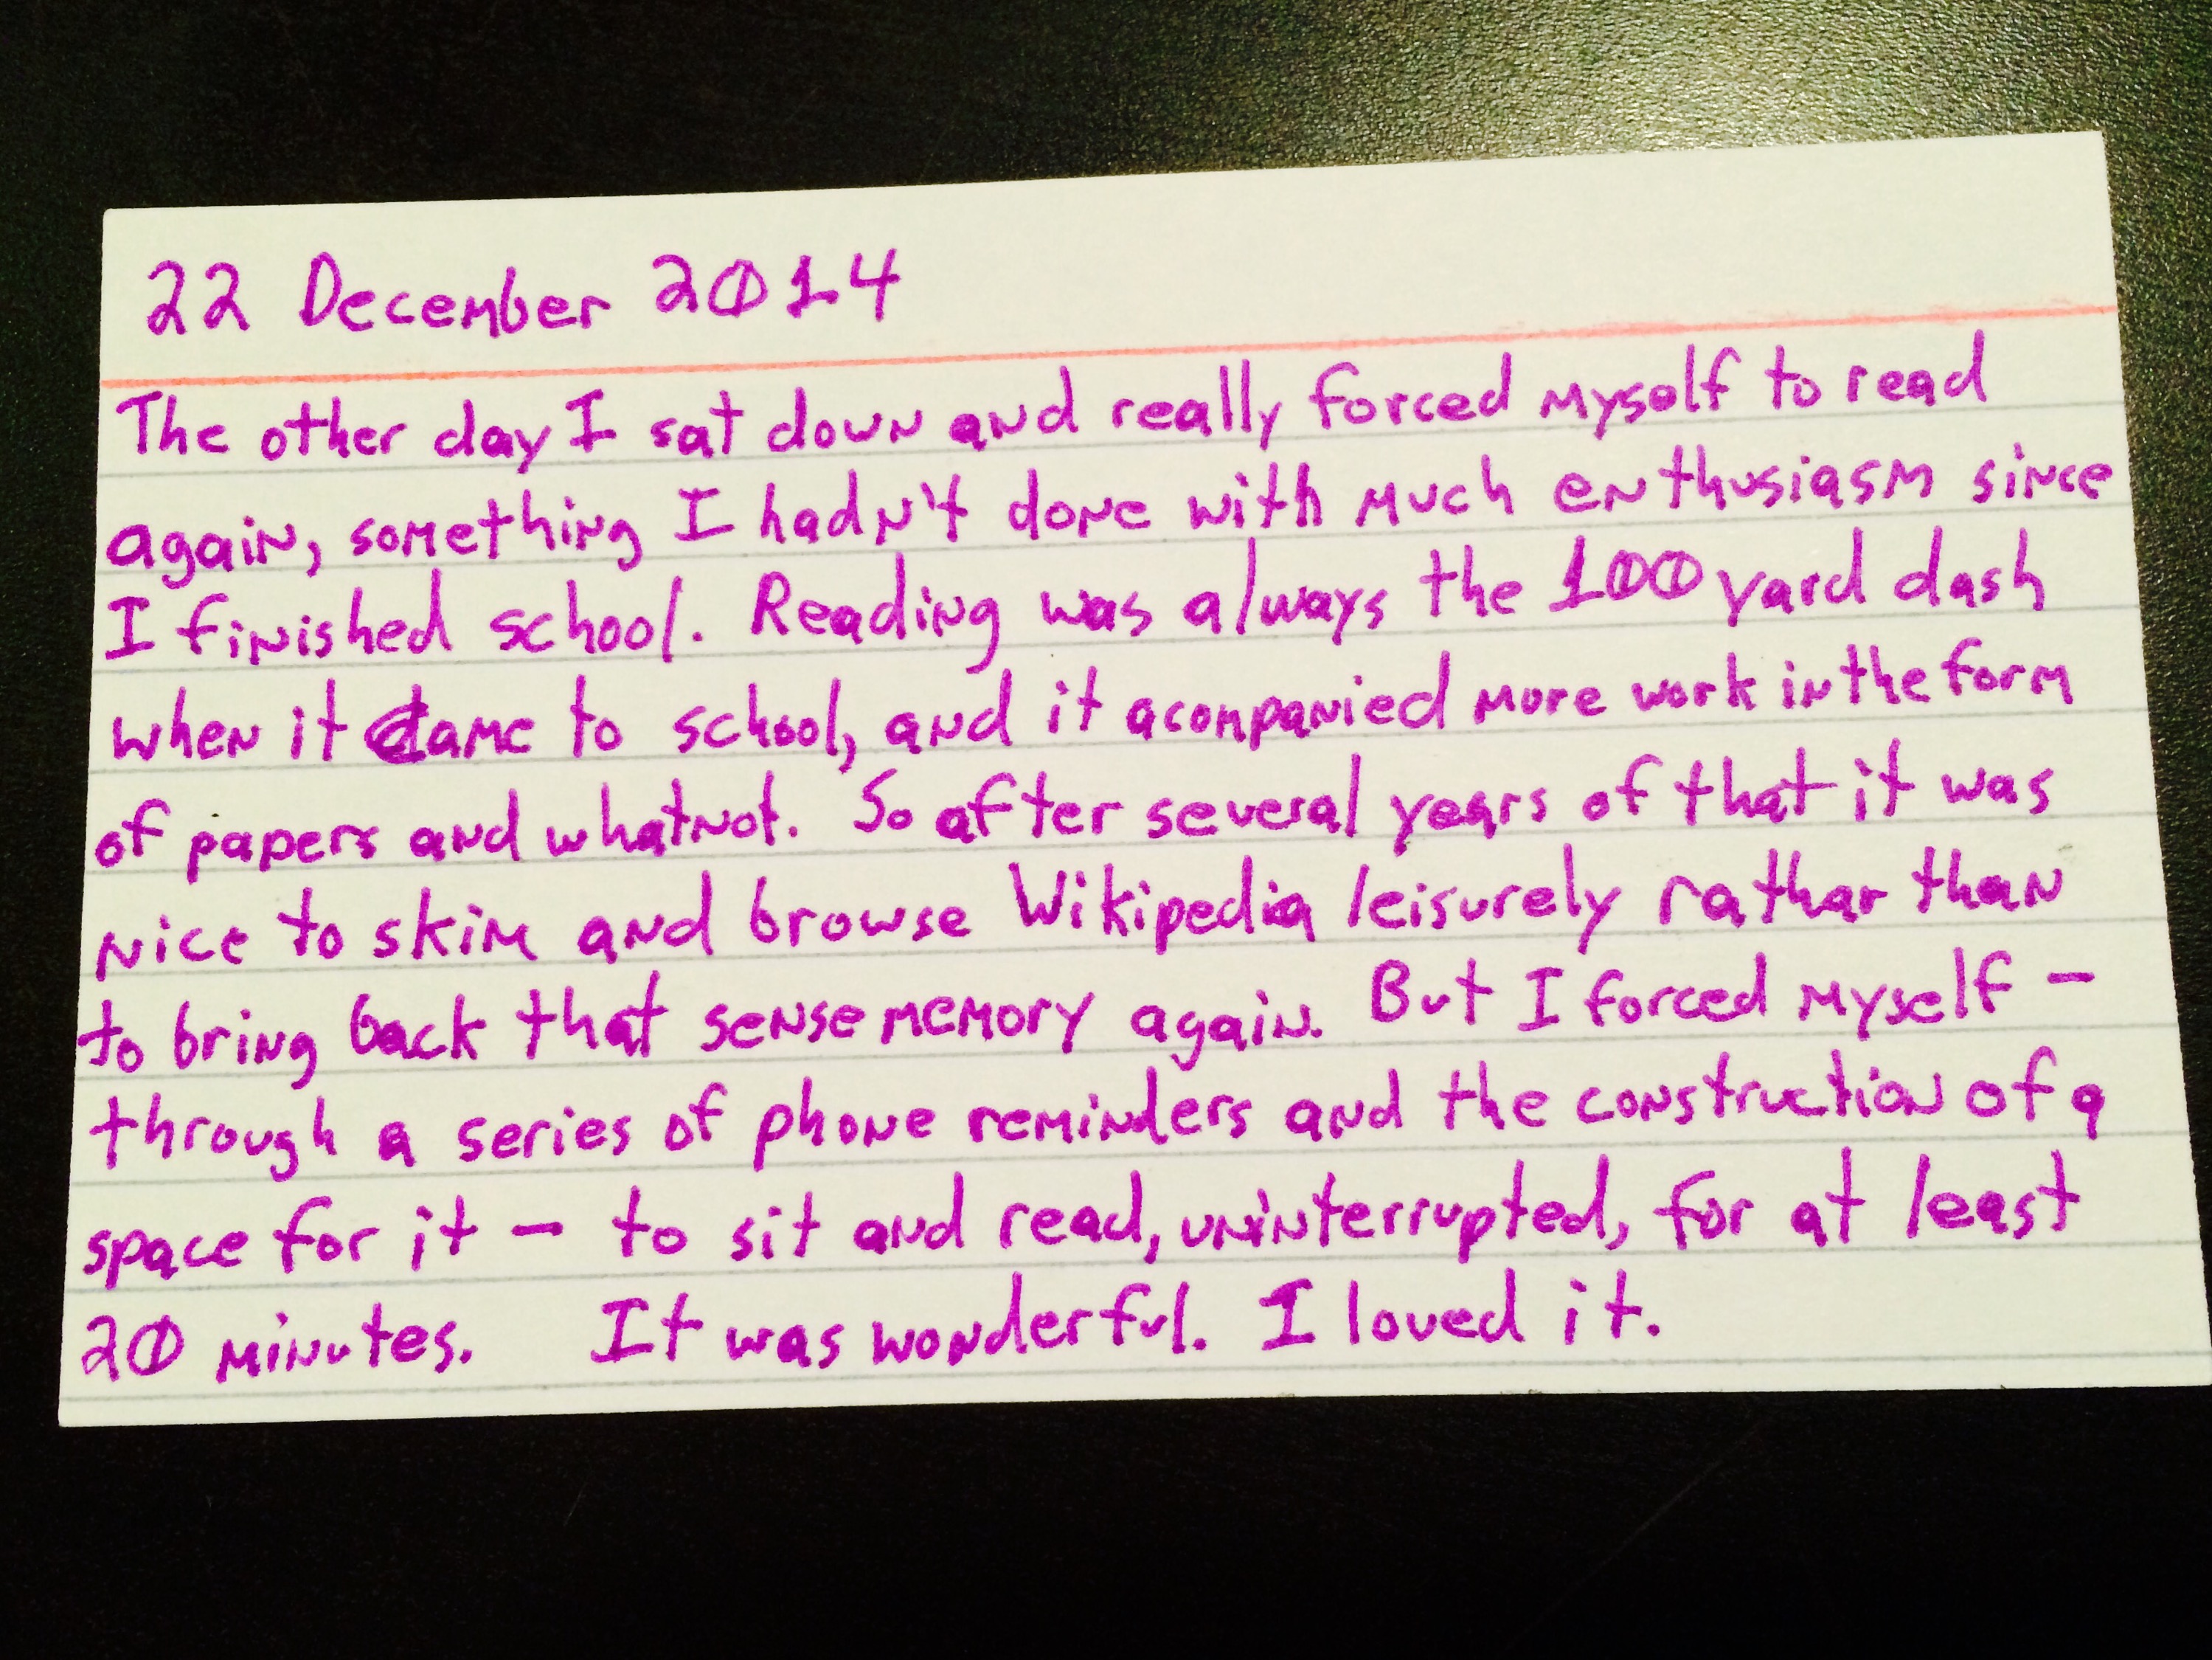 22 December 2014
The other day I sat down and really forced myself to read
again, something I hadn't done with much enthusiasm since
I finished school. Reading was always the 100 yard dash
when it came to school, and it acompanied more work in the form
of papers and whatnot. So after several years of that it was
nice to skim and browse Wikipedia leisurely rathar than
to bring back that sense memory again. But I forced myself -
through a series of phone reminders and the construction of a
space for it - to sit and read, uninterrupted, for at least
20 minutes. It was wonderful. I loved it.